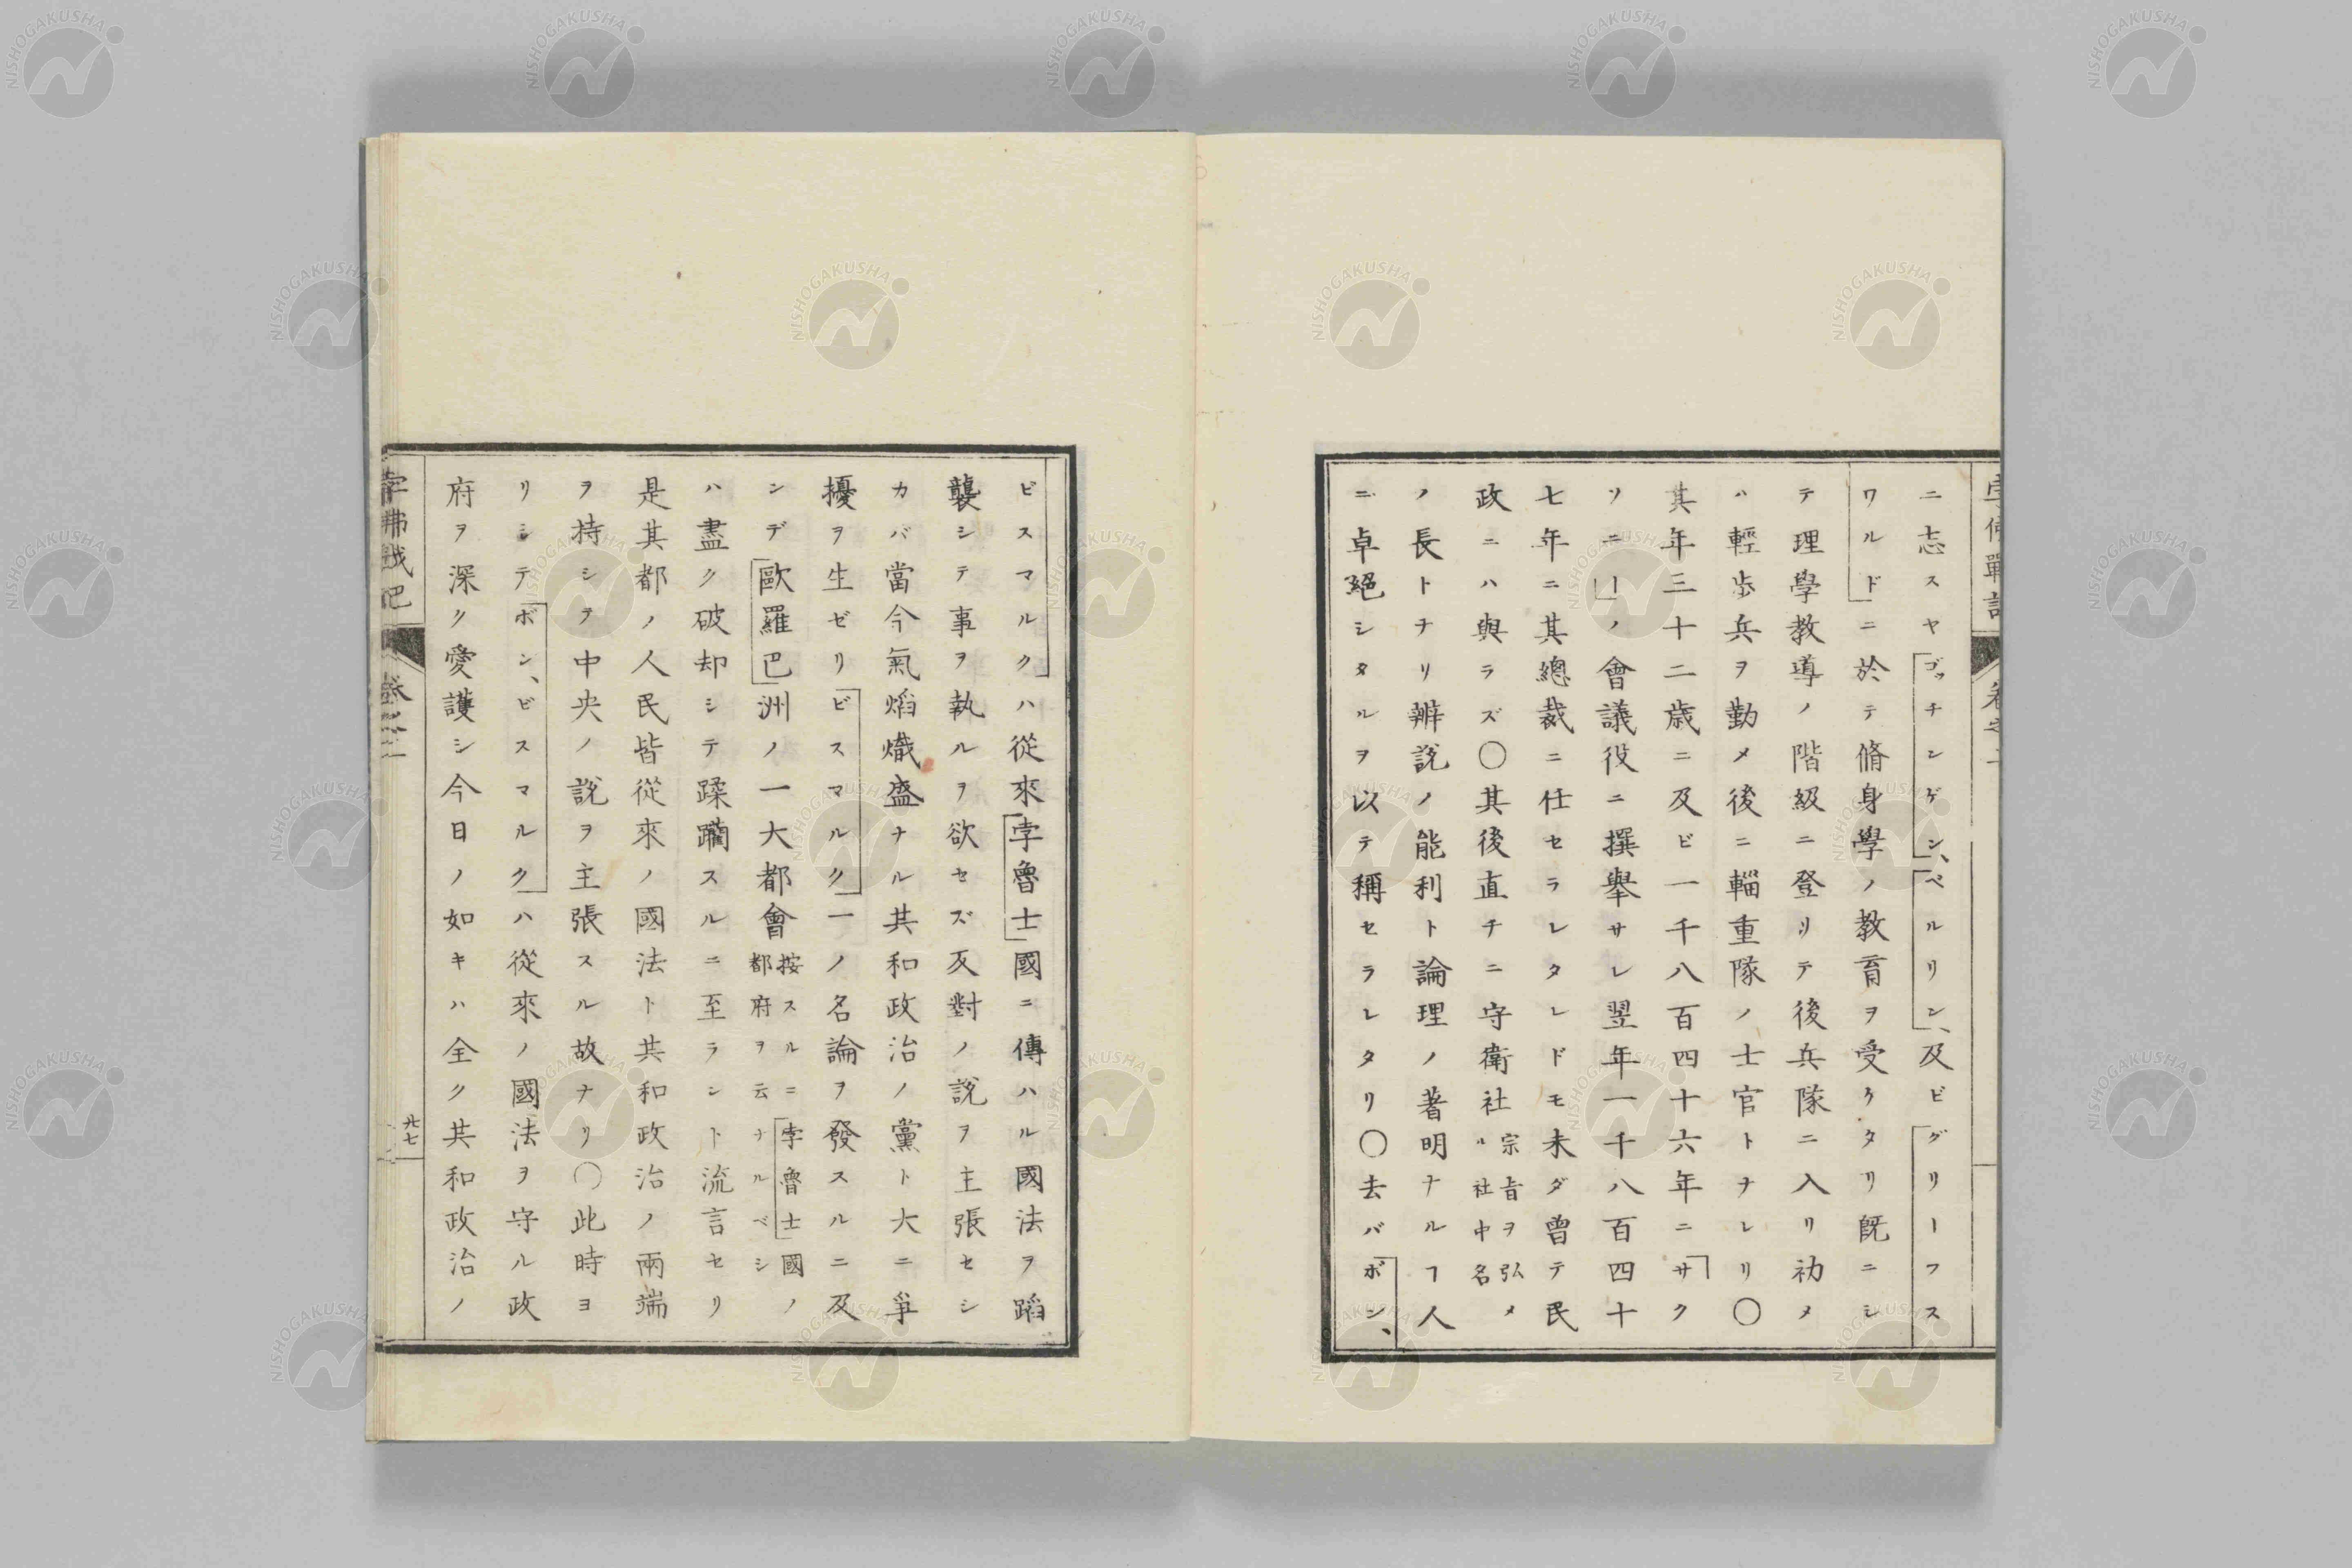 ニ志スヤゴッチンゲン、ベルリン、及ビグリーフス
ワルドニ於テ脩身學ノ教育ヲ受ケタリ既ニシ
テ理學教導ノ階級ニ登リテ後兵隊ニ入リ初メ
ハ輕歩兵ヲ勤メ後ニ輜重隊ノ士官トナレリ〇
其年三十二歳ニ及ビ一千八百四十六年ニサク
ソニーノ會議役ニ撰舉サレ翌年一千八百四十
七年ニ其總裁ニ仕セラレタレドモ未ダ曽テ民
政ニハ與ラズ〇其後直チニ守衛社宗旨ヲ弘メル社中名
ノ長トナリ辨説ノ能利ト論理ノ著明ナルヿ人
ニ卓絕シタルヲ以テ稱セラレタリ〇去バボン、
ビスマルクハ從來孛魯士國ニ傳ハル國法ヲ蹈
襲シテ事ヲ執ルヲ欲セズ反對ノ説ヲ主張セシ
カバ當今氣焰熾盛ナル共和政治ノ黨ト大ニ爭
擾ヲ生ゼリビスマルク一ノ名論ヲ發スルニ及
ンデ歐羅巴洲ノ一大都會按スルニ孛魯士國ノ都府ヲ云ナルベシ
ハ盡ク破却シテ蹂躪スルニ至ラシト流言セリ
是其都ノ人民皆從來ノ國法ト共和政治ノ兩端
ヲ持シヲ中央ノ説ヲ主張スル故ナリ〇此時ヨ
リシテボン、ビスマルクハ從來ノ國法ヲ守ル政
府ヲ深ク愛護シ今日ノ如キハ全ク共和政治ノ
孛弗戰記
卷之二
廿七
NISHOGAKUSHA